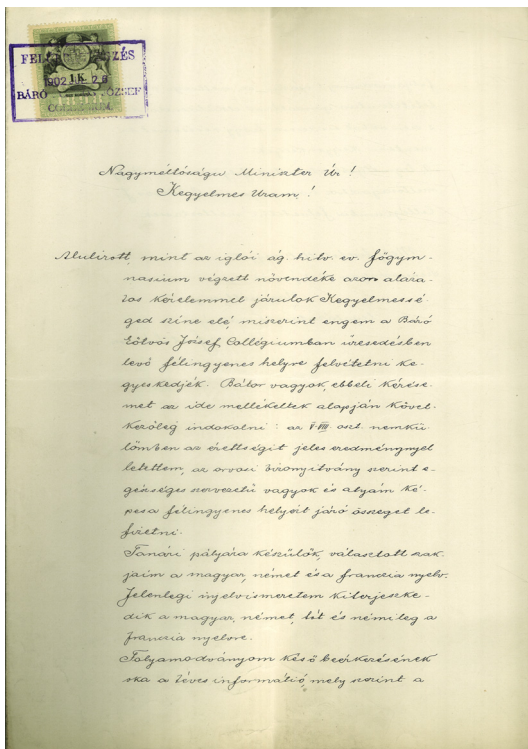 1 K.
1902
BÁRÓ JÓZSEF
Nagyméltóságu Miniszter Úr!
Kegyelmes Uram!
Alulirott, mint az iglói ág. hitv. ev. főgym-
nasium végzett növendéke azon aláza-
tos kérelemmel járulok Kegyelmessé
ged szine elé, miszerint engem a Báró
Eötvös József Collégiumban üresedésben
levő félingyenes helyre felvétetni ke-
gyeskedjék. Bátor vagyok, ebbeli kérése-
met az ide mellékeltek alapján követ-
kezőleg indokolni: az V-VIII oszt. nemkü
lömben az érettségit jeles eredménynyel
letettem, az orvosi bizonyitvány szerint e-
gészséges szervezetű vagyok és atyám ké-
pes a félingyenes helyért járó összeget le-
fizetni.
Tanári pályára készülök, választott szak
jaim a magyar, német és a franczia nyelv.
Jelenlegi nyelvismeretem kiterjeszke-
dik a magyar, német, tót és némileg a
franczia nyelvre.
Folyamodványom késő beérkezésének
oka a téves információ, mely szerint a